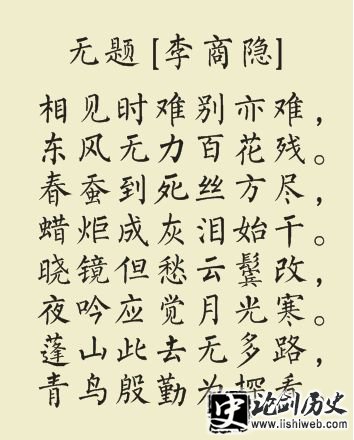 无题[李商隐]
相见时难别亦难，
东风无力百花残。
春蚕到死丝方尽，
蜡炬成灰泪始干。
晓镜但愁云鬓改，
夜吟应觉月光寒。
蓬山此去无多路，
青鸟殷勤为探看
史 论剑历史
www.lishiweb.com